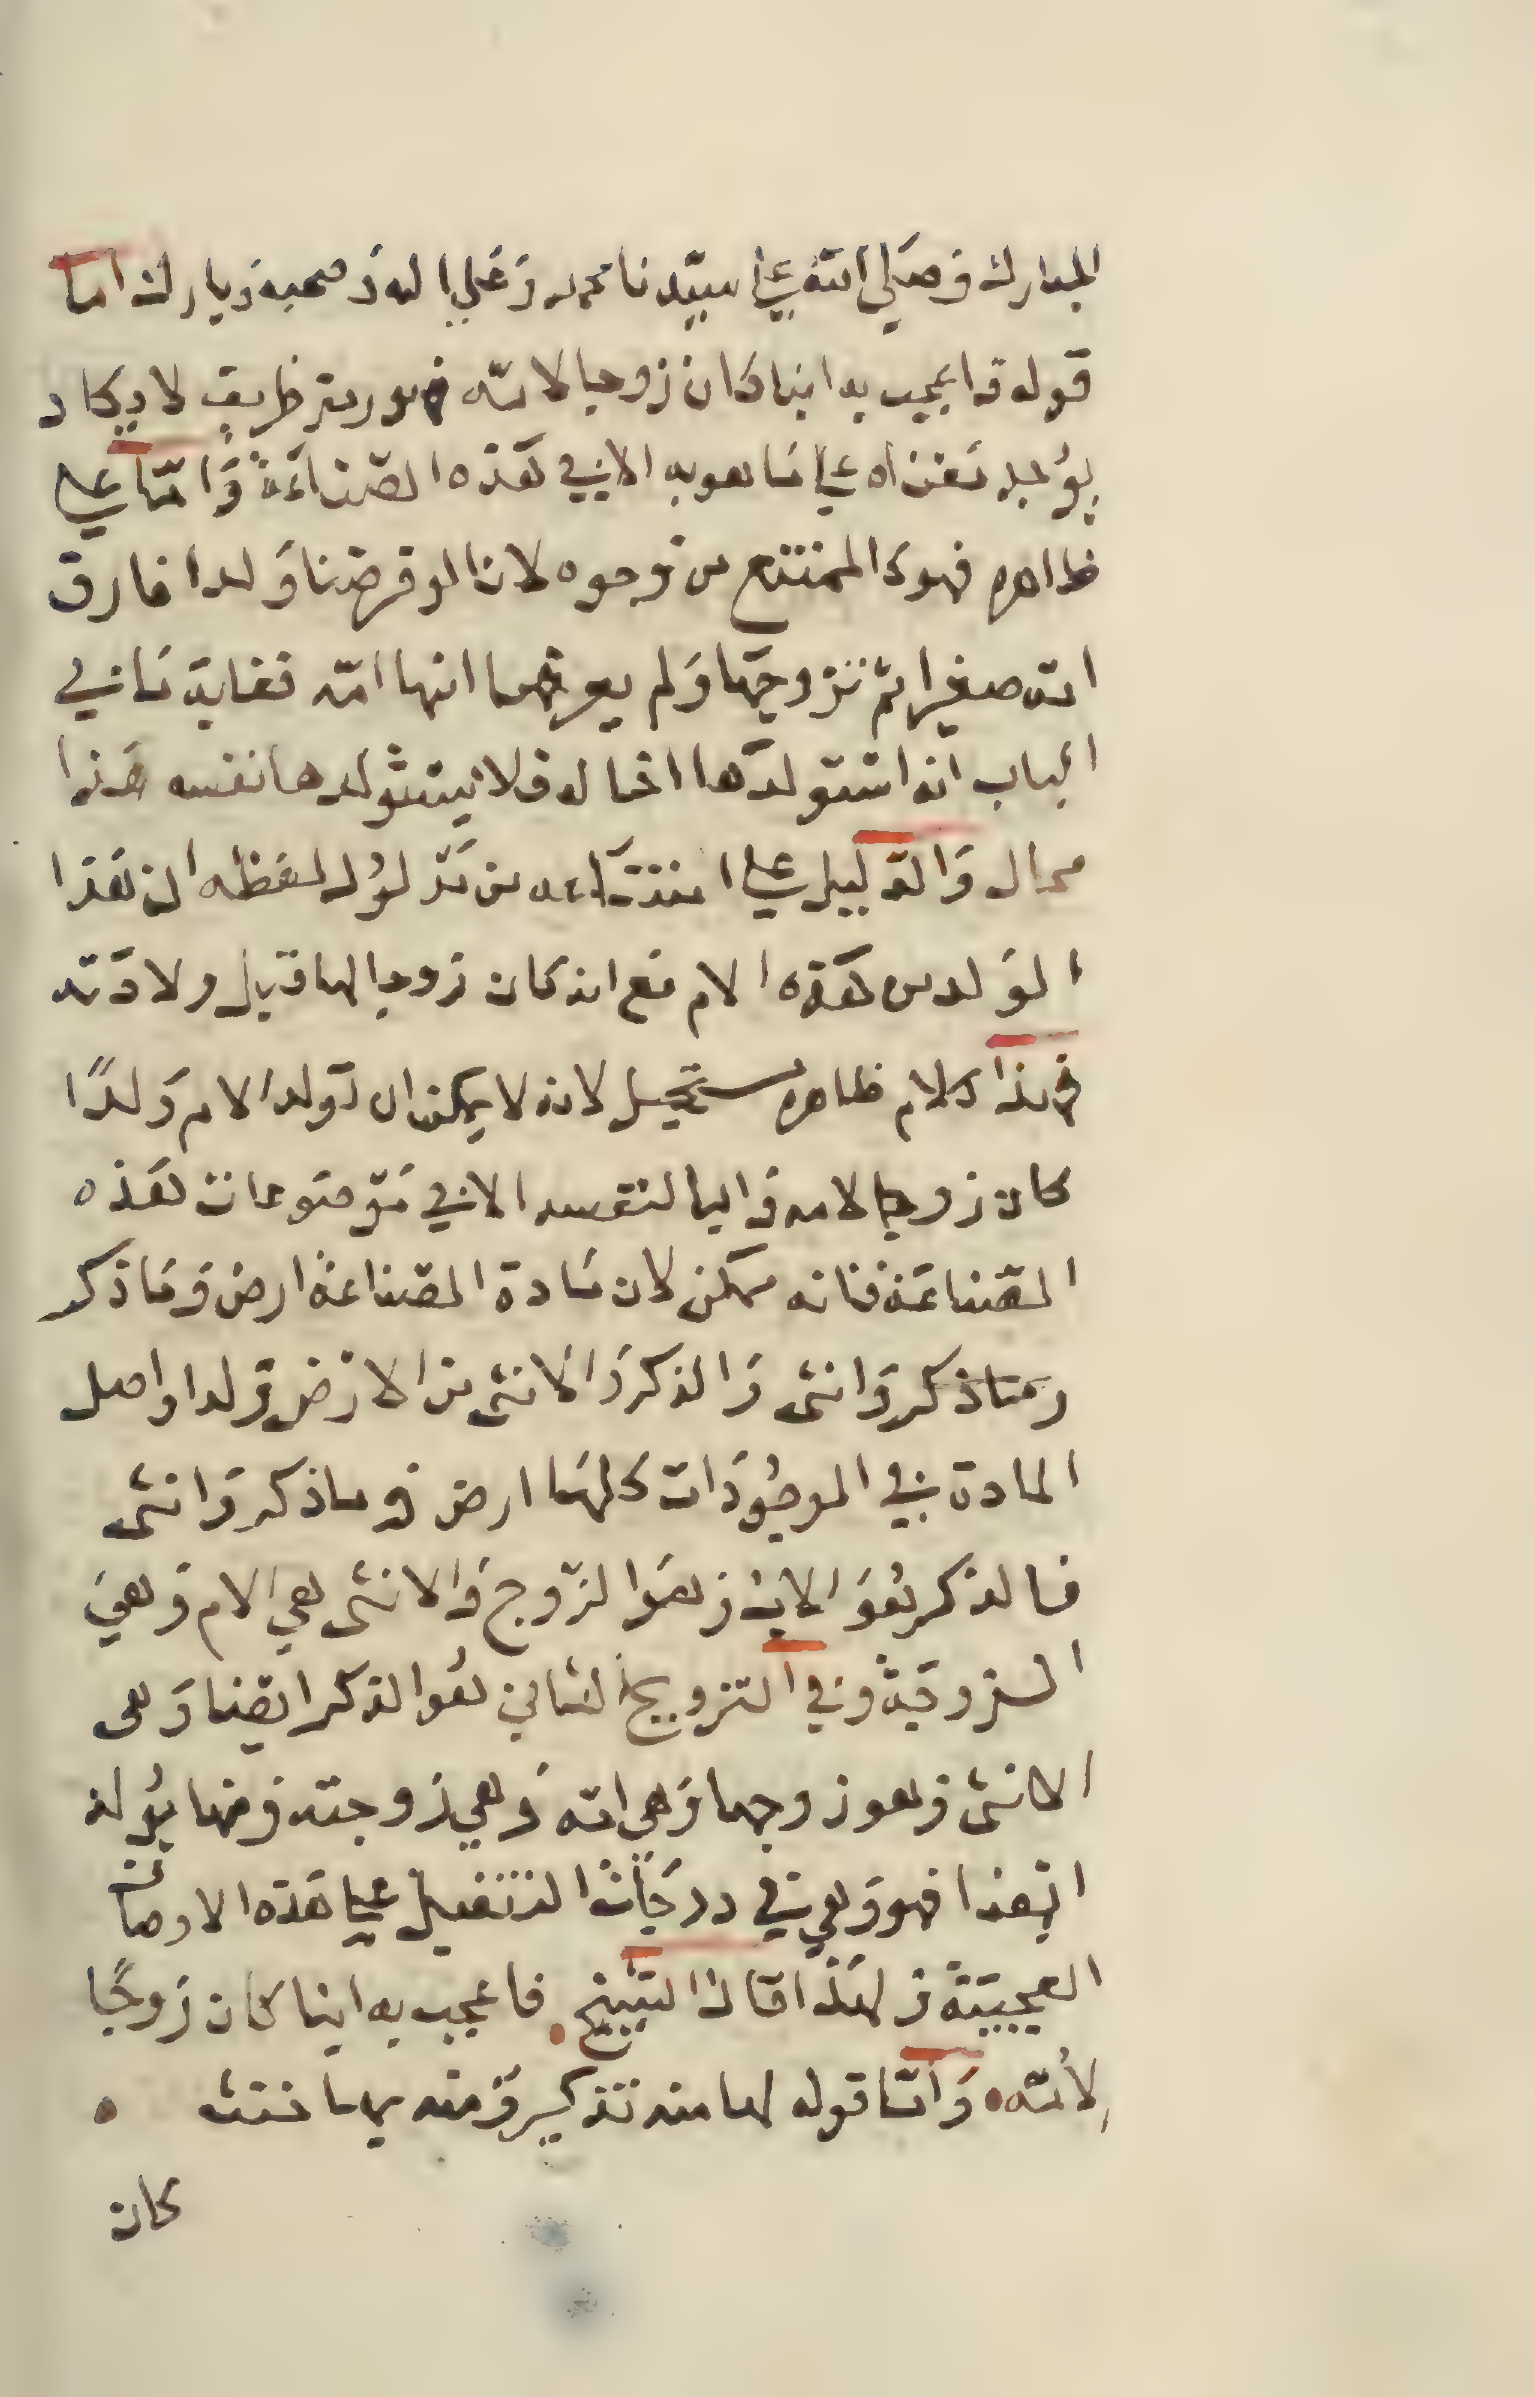 المبارك وصلى الله على سيدنا محمد وعلى اله وصحبه وبارك اما
قوله فاعجب به ابنا كان زوجا لامه فهو رمز ظريف لا يكاد
يوجد معناه على ما هو به الا في هذه الصناعة واما على
ظاهره فهو كالممتنع من وجوه لانا لو فرضنا ولدا فارق
امه صغيرا ثم تزوجها ولم يعرفها انها امه فغاية ما في
الباب انه استولدها اخا له فلا يستولدها نفسه هذا
محال والدليل على امتناعه من مدلول لفظه ان هذا
الولد من هذه الام مع انه كان زوجا لها قبل ولادته
فهذا كلام ظاهره مستحيل لانه لا يمكن ان تولد الام ولدًا
كان زوجا لامه وابا لنفسه الا في موضوعات هذه
الصناعة فانه ممكن لان مادة الصناعة ارض وماذكر
رمناذكر وانثى والذكر والانثى من الارض تولدا واصل
المادة في الموجودات كلها ارض وماذكر وانثى
فالذكر هو الاب وهو الزوج والانثى هي الام وهي
الزوجة وفي التزويج الثاني هو الذكر ايضا وهى
الانثى وهو زوجها وهى امه وهي زوجته ومنها يولد
ايضا فهو وهي في درجات التفصيل على هذه الاوصاف
العجيبة ولهذا قال الشيخ. فاعجب به ابنا كان زوجًا
لأمه. واما قوله لها منه تذكير ومنه بها خنث .
كان